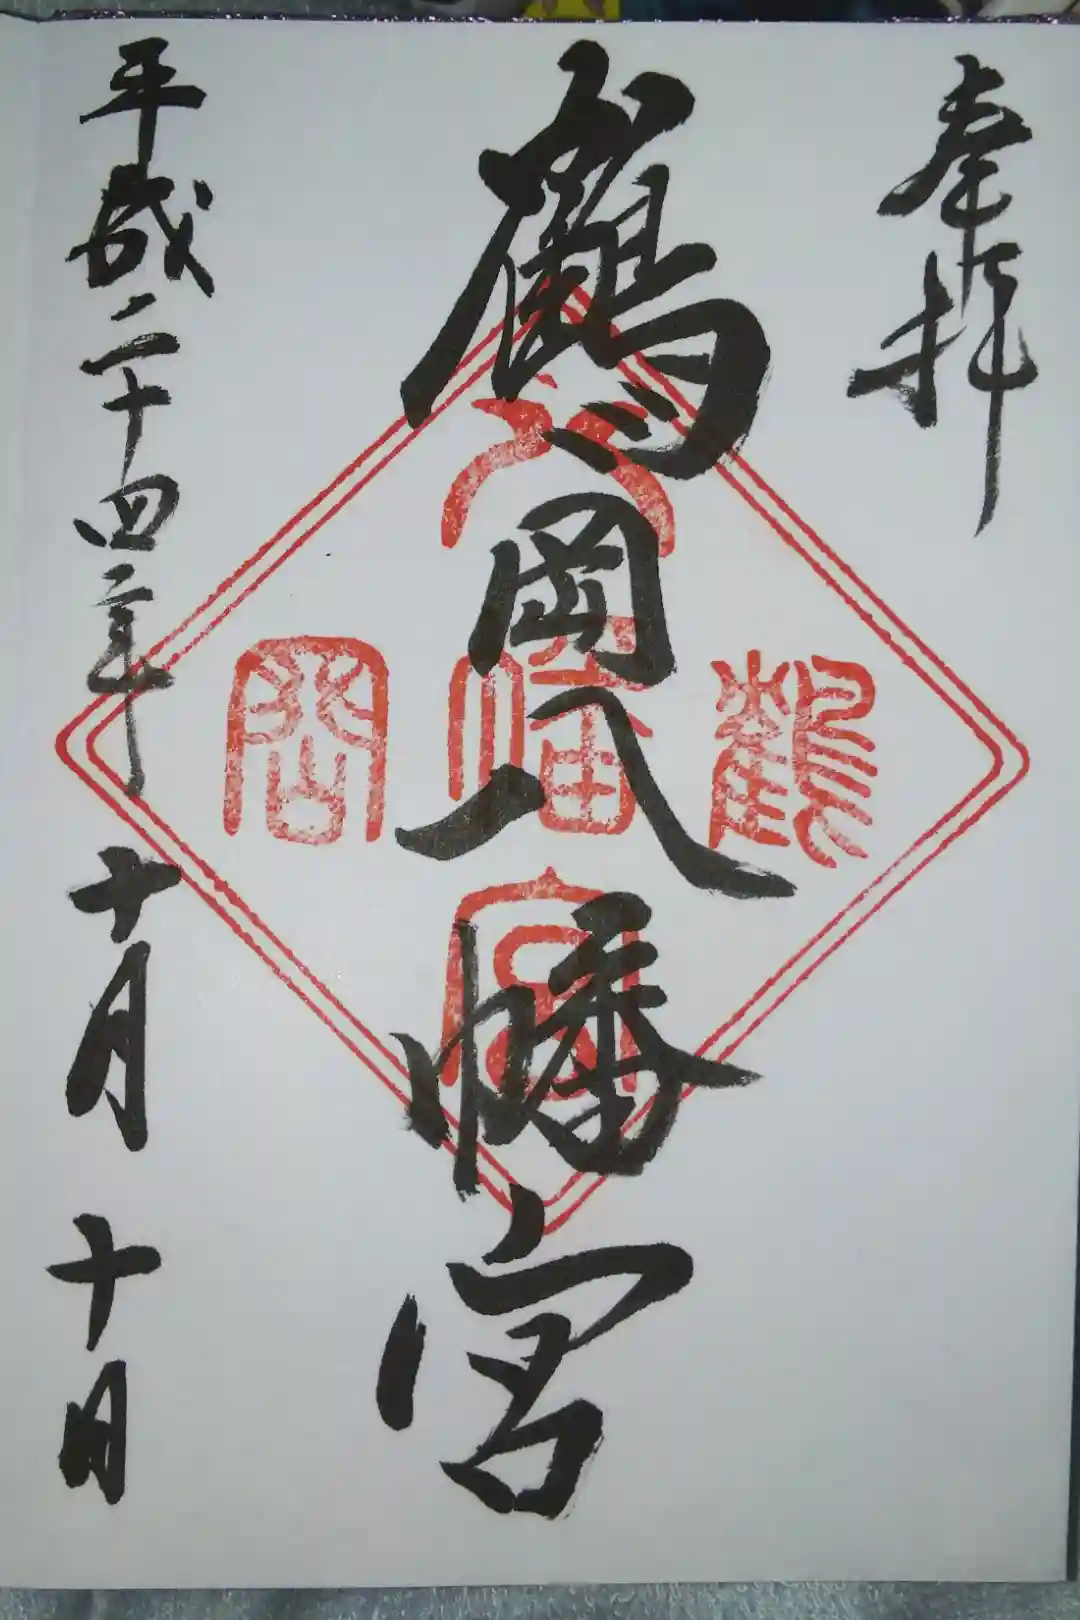 奉拝
鶴岡八幡宮
鶴
八幡宮
岡
平成二十四年十月十日